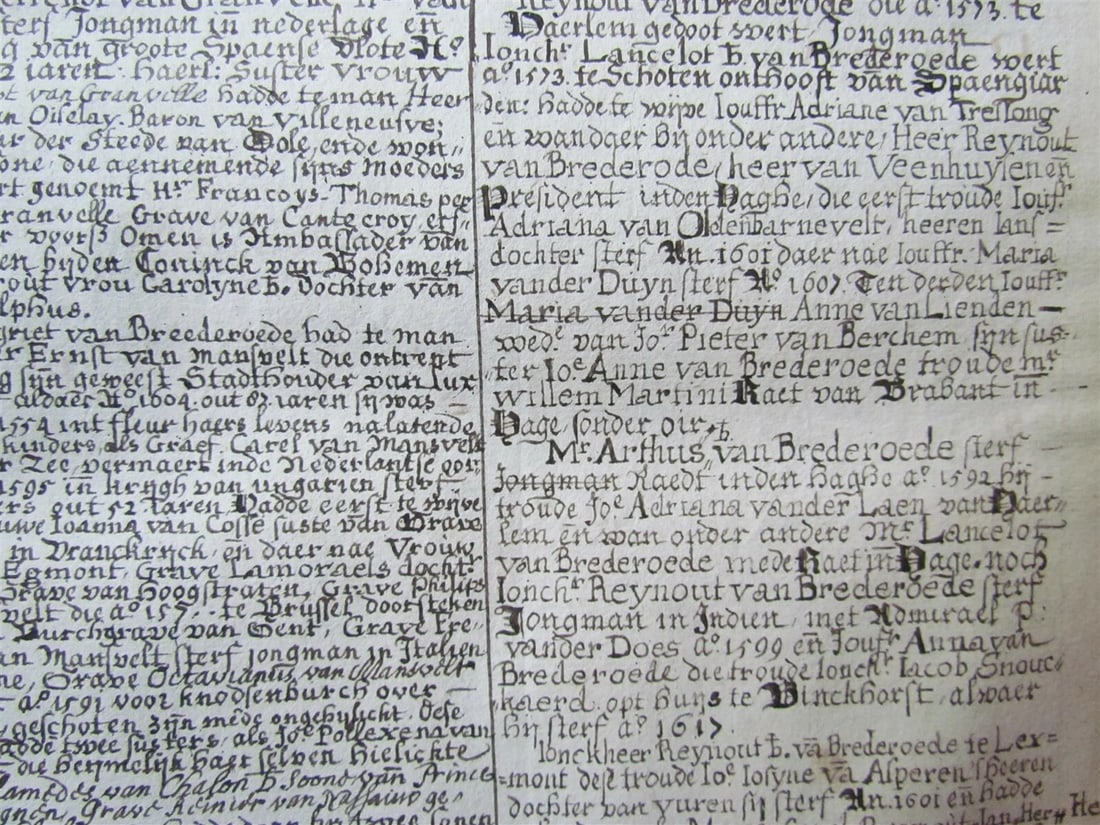 sterf Jongman in nederlage en
van groote Spaense Vlote Ao
iaren. Haerl: Suster vrouw
van Granvelle hadde te man Heer
Oiselay. Baron van Villeneufve;
der Steede van Dole, ende won„
die aennemende sijns moeders
genoemt Hr. Francoys Thomas per
Granvelle Grave van Cantecroy, etſ„
voorſz Omen is Ambassader van
bijden Coninck van Bohemen
trout vrou Carolyne b. dochter van
griet van Breederoede had te man
Ernst van Mansvelt die ontrent
sijn geweest Stadthouder van Lux
aldaer Ao 1604. out 87 iaren sij was
1554 int fleur haers levens nalatende
kinders, als Graef. Carel van Mansvelt
Zee, vermaert inde Nederlantse oor
1595 in krijgh van ungarien sterf
out 52. Iaren. Hadde eerst te wijve
Ioanna van Cosse suste van Grave
in Vranckrijck, en daer nae Vrouw
Egmont, Grave Lamoraels docht:
Grave van Hoogstraten, Grave Philips
die ao. 157 te Brussel doorsteken
Burchgrave van Gent, Grave Fre„
Mansvelt sterf jongman in Italien
Grave Octavianus van Mansvelt
ao. 1591 voor knodsenburch over
geschoten zijn mede ongehylickt. Dese
hadde twee susters, als Joe Pollexena van
die heijmelijk haer selven Hielickte
van Chalon b. Soone van Prince
Grave Reinier van Nassauw ge„
Reynout van Brederode die ao. 1573. te
Haerlem gedoot wert, Jongman
Ionchr. Lancelot b. van Brederoede wert
ao. 1573. te Schoten onthooft van Spaengiar
den: hadde te wijve Iouffr. Adriane van Treslong
en wan daer bij onder andere, Heer Reynout
van Brederode, heer van Veenhuysen en
President inden Haghe, die eerst troude Iouf.r
Adriana van Oldenbarnevelt, heeren Ians=
dochter sterf An. 1601 daer nae Iouffr. Maria
vander Duyn sterf Ao 1607. Ten derden Iouffr.
Maria vander Duyn Anne van Lienden —
wede. van Jor. Pieter van Berchem sijn sus-
ter Ioe. Anne van Brederoede troude mr.
Willem Martini Raet van Brabant in -
Hage, sonder oir,
Mr. Arthus b van Brederoede sterf
Jongman Raedt inden Haghe ao. 1592 hij -
troude Joe. Adriana vander Laen van Haer„
lem en wan onder andere Mr. Lancelot
van Brederoede mede Raet in Hage, noch
Ionchr. Reynout van Brederoede sterf
Jongman in Indien, met Admirael P.
vander Does ao. 1599 en Joufr. Anna van
Brederoede die troude Ionchr. Iacob Snouc-
kaerd. opt huys te Binckhorst, alwaer
hij sterf ao. 1617.
Ionckheer Reynout b. va Brederoede te Lex=
mont dese troude Ioe. Iosyne va Asperen sheeren
dochter van vuren sij sterf An. 1601 en hadde